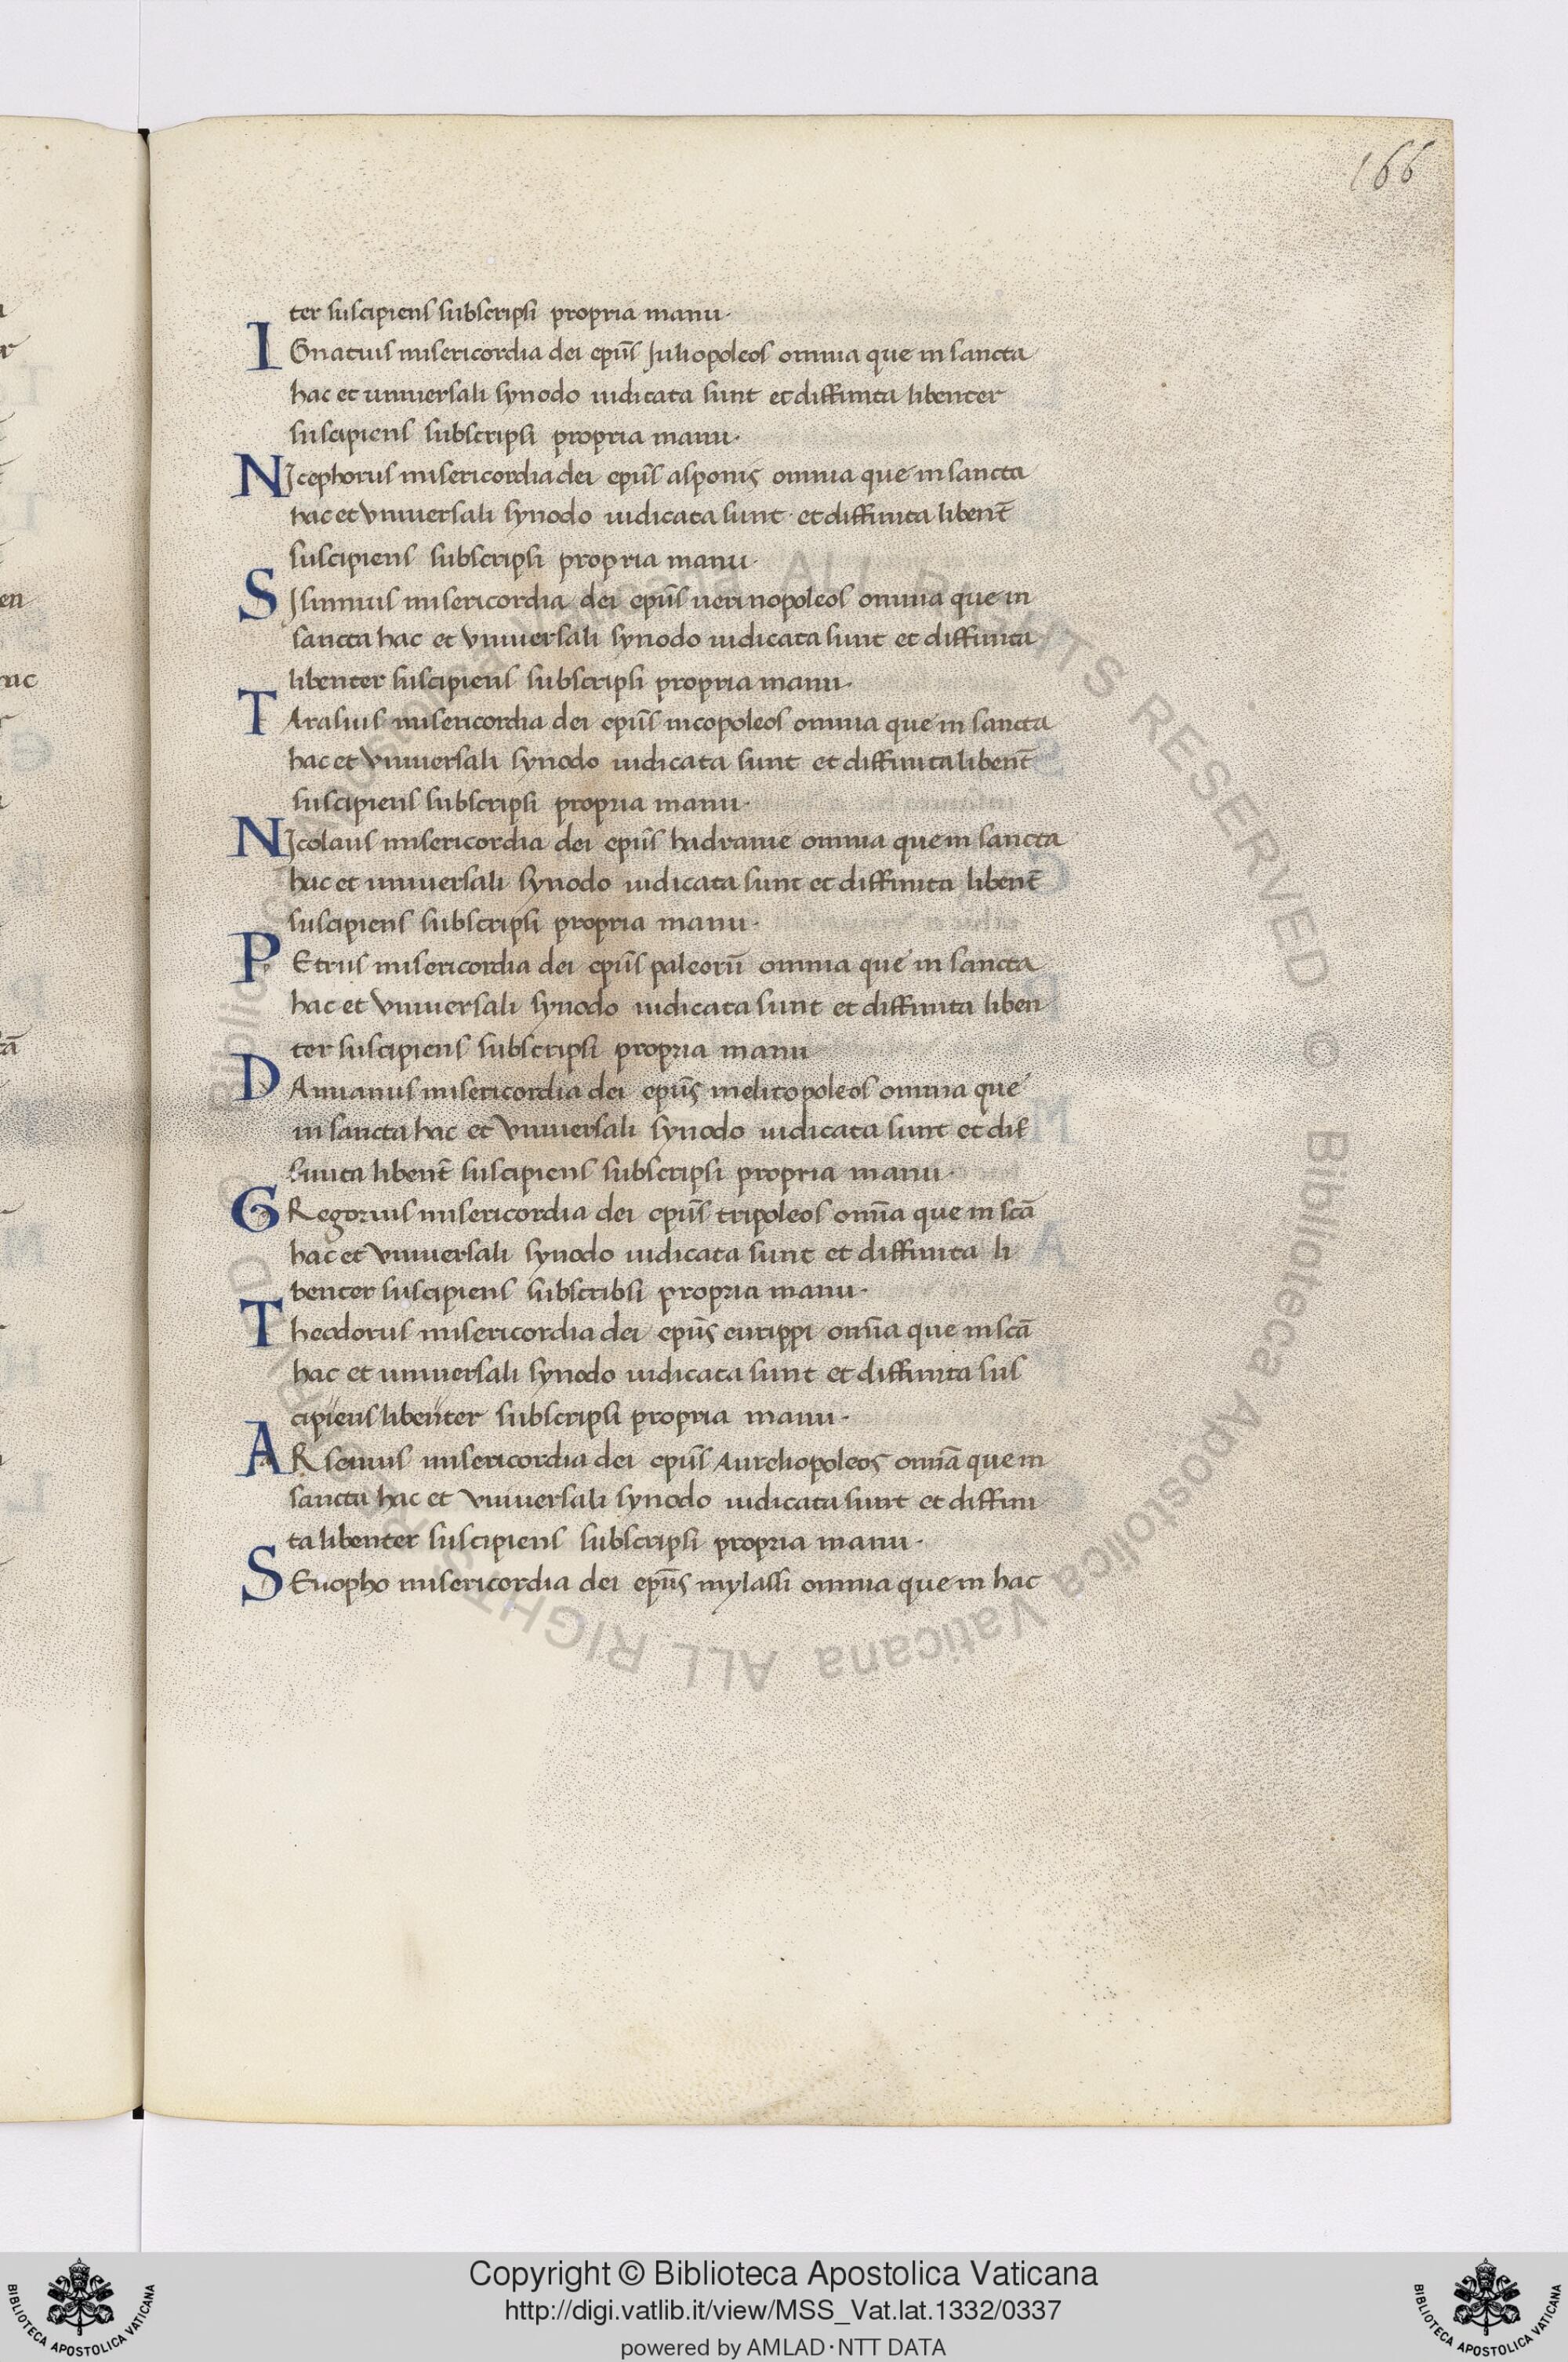 166
ter suscipiens subscripsi propria manu.
IGnatius misericordia dei ep̄us Juliopoleos omnia que in sancta
hac et universali synodo iudicata sunt et diffinita libenter
suscipiens subscripsi propria manu.
NIcephorus misericordia dei ep̄us asponis omnia que in sancta
hac et universali synodo iudicata sunt. et diffinita libent̄
suscipiens subscripsi propria manu.
SIsinnius misericordia dei ep̄us verinopoleos omnia que in
sancta hac et universali synodo iudicata sunt et diffinita
libenter suscipiens subscripsi propria manu.
TArasius misericordia dei ep̄us nicopoleos omnia que in sancta
hac et universali synodo iudicata sunt et diffinita libent̄
suscipiens subscripsi propria manu.
NIcolaus misericordia dei ep̄us hidranie omnia que in sancta
hac et universali synodo iudicata sunt et diffinita libent̄
suscipiens subscripsi propria manu.
PEtrus misericordia dei ep̄us paleorū omnia que in sancta
hac et universali synodo iudicata sunt et diffinita liben
ter suscipiens subscripsi propria manu
DAmianus misericordia dei ep̄us melitopoleos omnia que
in sancta hac et universali synodo iudicata sunt et dif
finita libent̄ suscipiens subscripsi propria manu.
GRegorius misericordia dei ep̄us tripoleos om̄ia que in scā
hac et universali synodo iudicata sunt et diffinita li
benter suscipiens subscribsi propria manu.
Theodorus misericordia dei ep̄us eurippi om̄ia que in scā
hac et universali synodo iudicata sunt et diffinita sus
cipiens libenter subscripsi propria manu.
ARsenius misericordia dei ep̄us Aureliopoleos om̄ia que in
sancta hac et universali synodo iudicata sunt et diffini
ta libenter suscipiens subscripsi propria manu.
SEuopho misericordia dei ep̄us mylassi omnia que in hac
Copyright © Biblioteca Apostolica Vaticana
http://digi.vatlib.it/view/MSS_Vat.lat.1332/0337
powered by AMLAD·NTT DATA